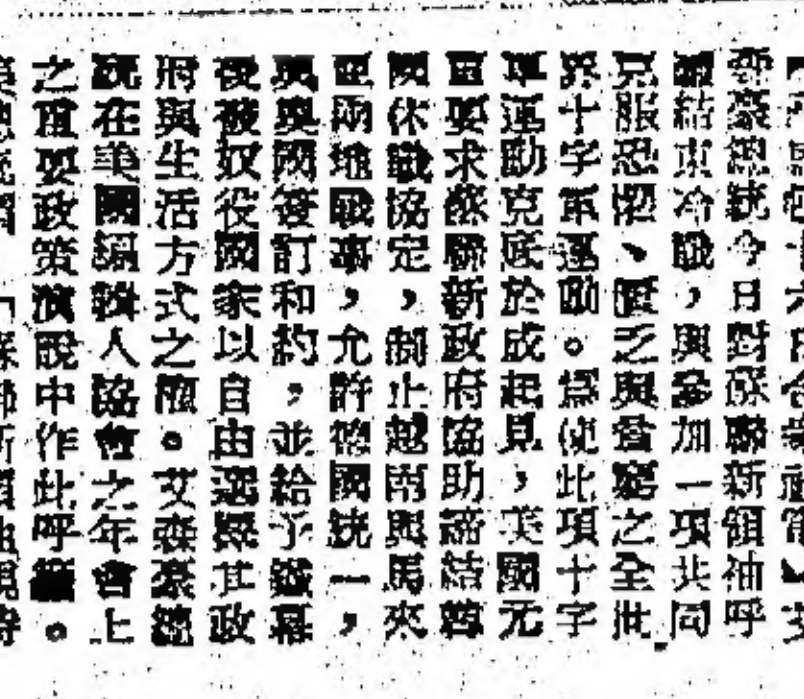 十六日合衆社電】艾
森豪總統今日對蘇聯新領袖呼
籲結束冷戰,與參加一項共同
克服恐懼、匱乏與貧窮之全世
界十字軍運動。爲使此項十字
軍運動克底於成起見,美國元
首要求蘇聯新政府協助締結韓
國休戰協定,制止越南與馬來
亞兩地戰事,允許德國統一,
與奧國簽訂和約,並給予鐵幕
後被奴役國家以自由選擇其政
府與生活方式之權。艾森豪總
統在美國編輯人協會之年會上
之重要政策演說中作此呼籲。
總統謂「蘇聯新